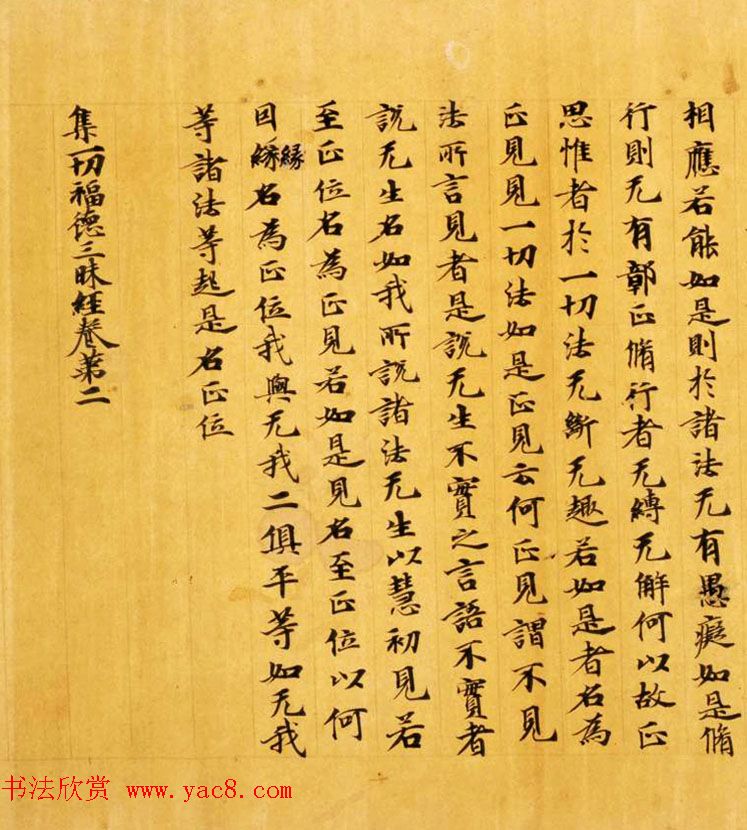 相應若能如是則於諸法无有愚癡如是脩
行則无有鄣正脩行者无縛无解何以故正
思惟者於一切法无斷无趣若如是者名為
正見見一切法如是正見云何正見謂不見
法所言見者是說无生不實之言語不實者
說无生名如我所說諸法无生以慧初見若
至正位名為正見若如是見名至正位以何
因緣緣名為正位我與无我二俱平等如无我
等諸法等起是名正位
集一切福德三昧經卷第二
书法欣赏 www.yac8.com